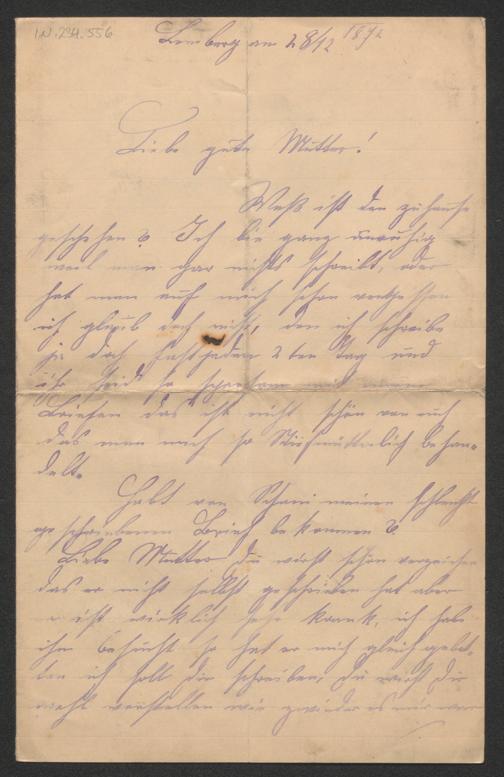 IN.234.556
Lemberg am 28/12 1892
Liebe gute Mutter!
Waß ist den zuhause
geschehen? Ich bin ganz unruhig
weil man gar nichts schreibt, oder
hat man auf mich schon vergessen
ich glaub doch nicht, den ich schreibe
ja doch fast jeden 2ten Tag und
ihr seid so sparsam mit euren
Briefen das ist nicht schön von euch
das man mich so Stiefmütterlich behan-
delt.
Habt von Schani meinen schlecht
geschriebenen Brief bekommen?
Liebe Mutter Du wirst schon verzeihen
das er nicht selbst geschrieben hat aber
er ist wirklich sehr krank, ich habe
ihn besucht so hat er mich gleich gebet-
ten ich soll dir schreiben, Du wirst Dir
wohl vorstellen wie zwieder es mir war